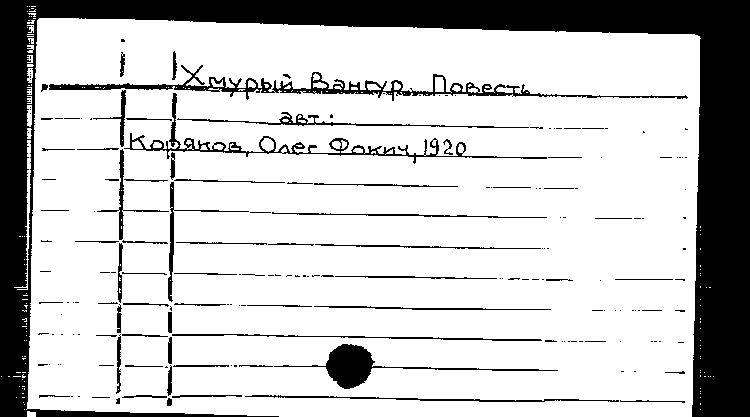 Хмурый Вангур. Повесть
авт.:
Коряков, Олег Фокич, 1920